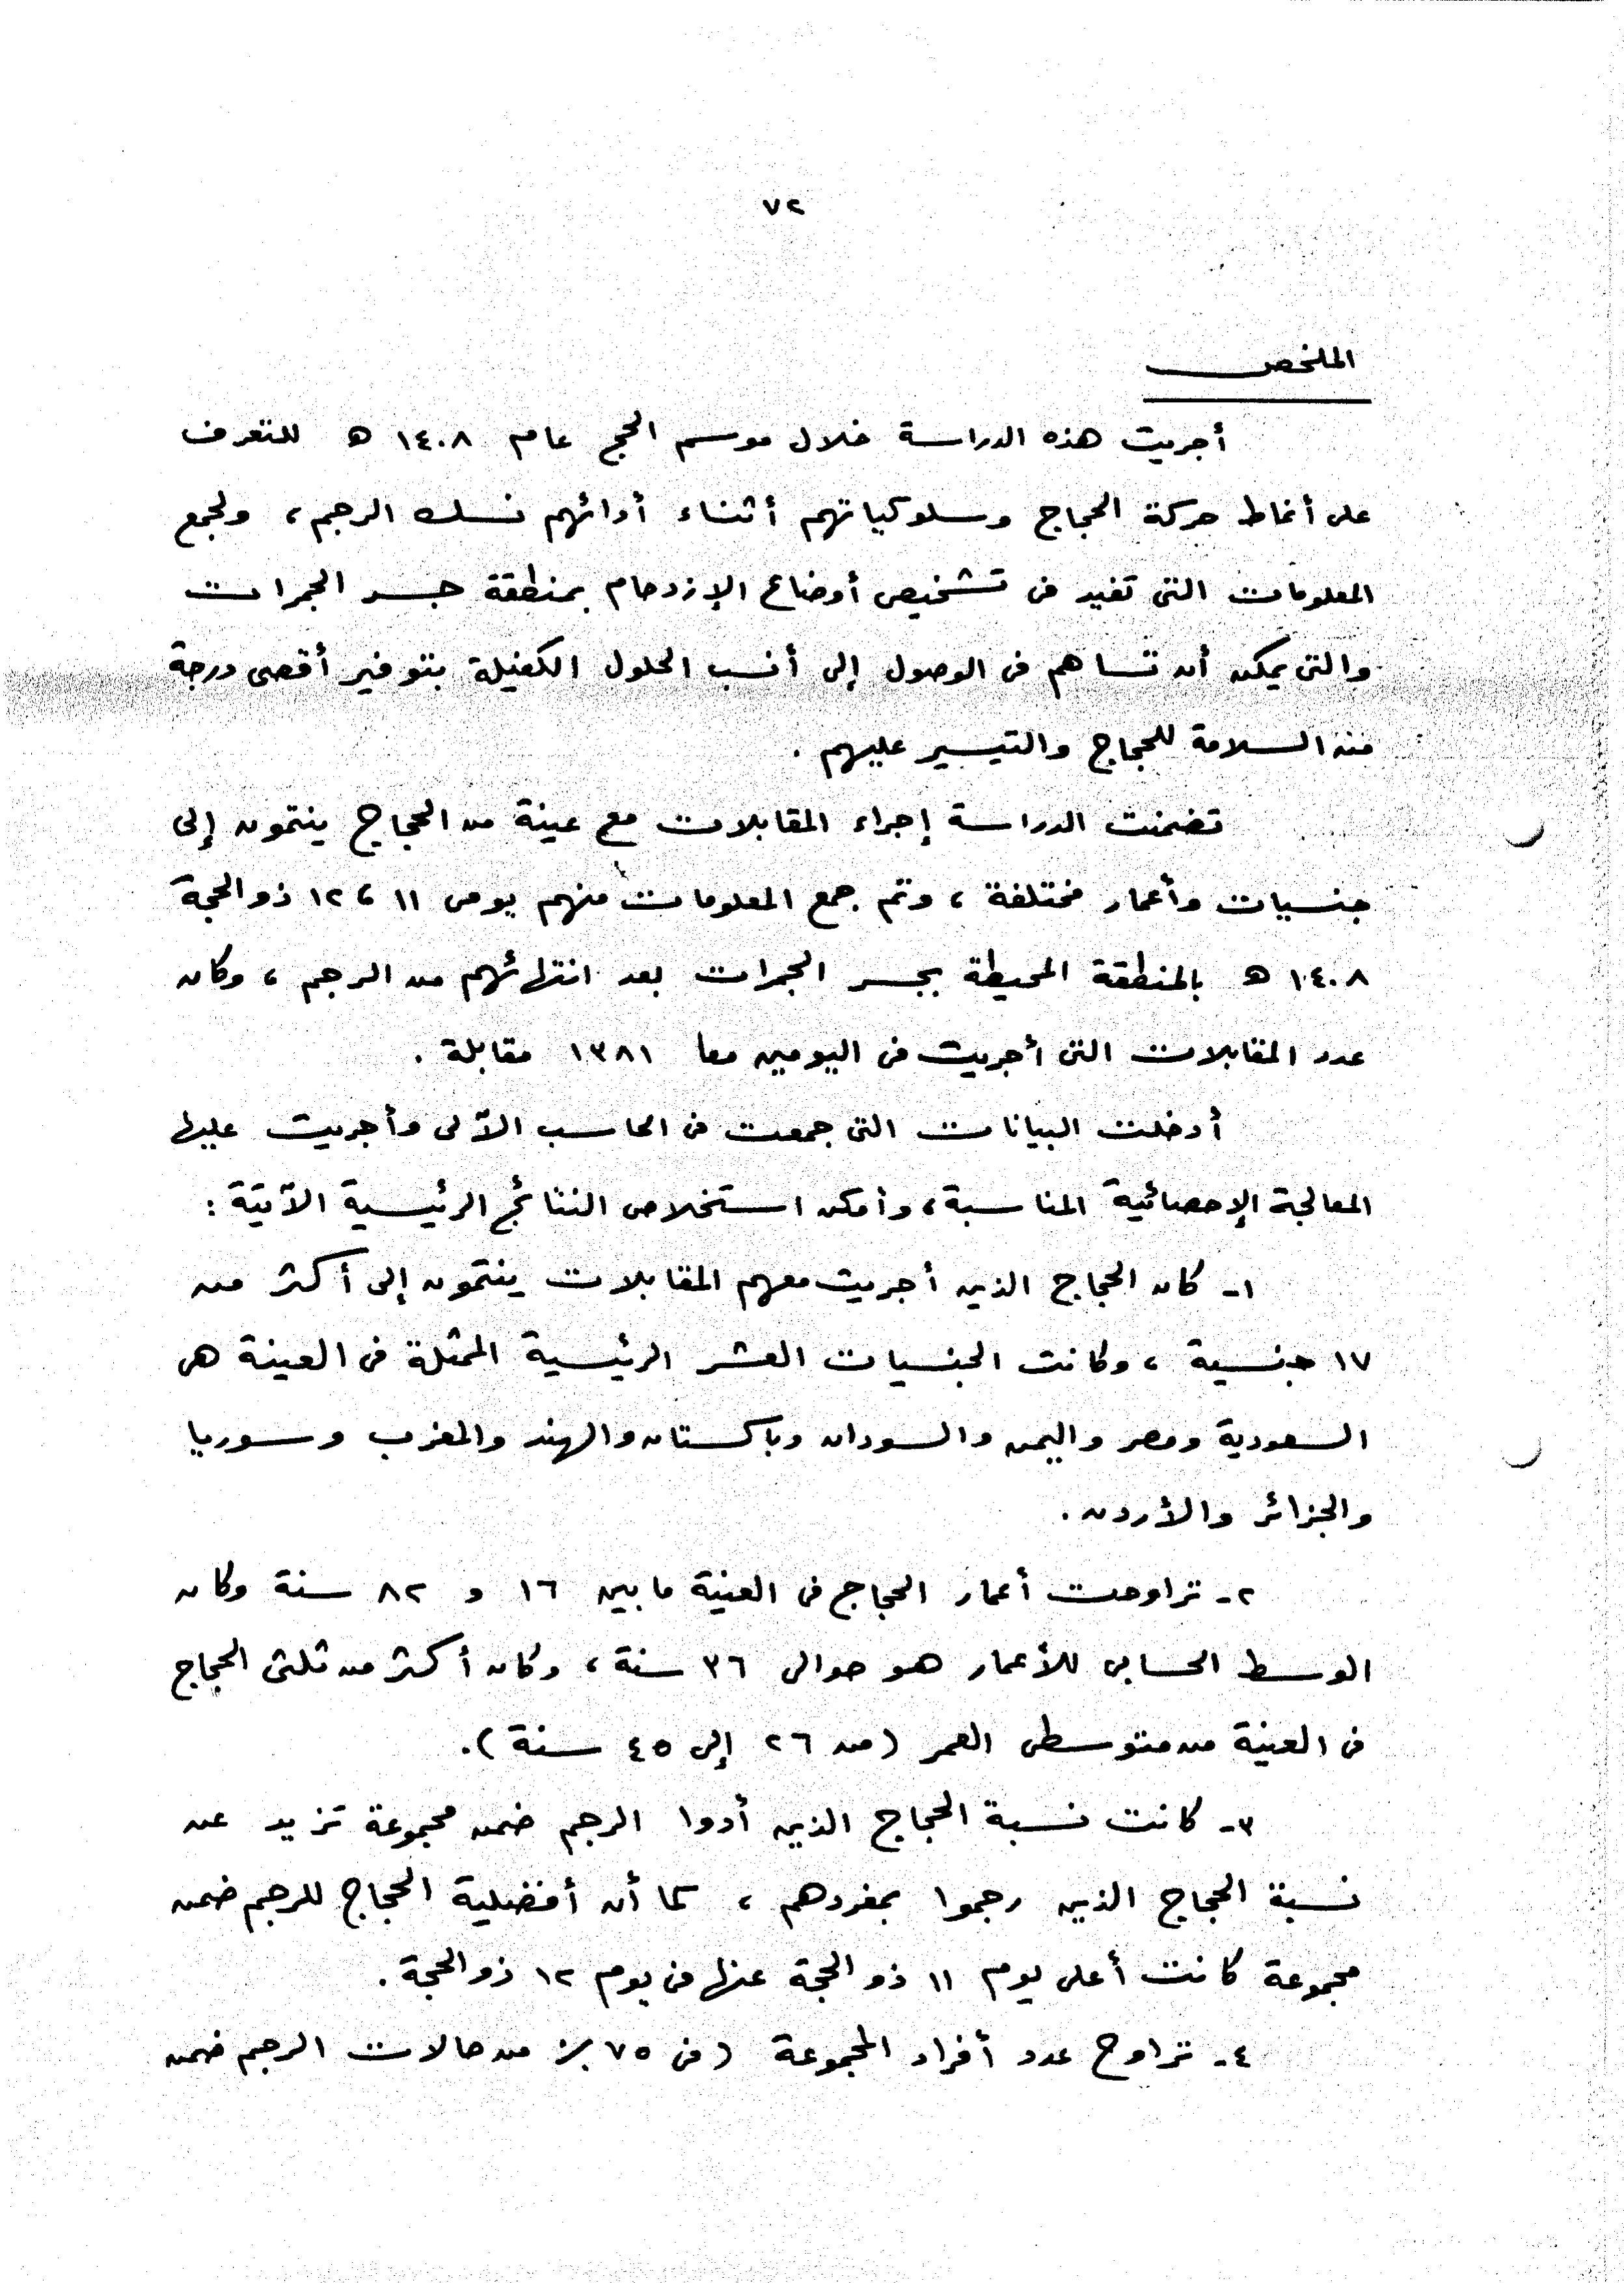 ٧٢
الملخص
أجريت هذه الدراسة خلال موسم الحج عام ١٤٠٨ ه للتعرف
على أنماط حركة الحجاج وسلوكياتهم أثناء أدائهم نسك الرجم، ولجمع
المعلومات التى تفيد فى تشخيص أوضاع الإزدحام بمنطقة جسر الجمرات
والتى يمكن أن تساهم فى الوصول إلى أنسب الحلول الكفيلة بتوفير أقصى درجة
من السلامة للحجاج والتيسير عليهم .
تضمنت الدراسة إجراء المقابلات مع عينة من الحجاج ينتمون إلى
جنسيات وأعمار مختلفة ، وتم جمع المعلومات منهم يومى ١١ ، ١٢ ذو الحجة
١٤٠٨ ه بالمنطقة المحيطة بجسر الجمرات بعد انتهائهم من الرجم ، وكان
عدد المقابلات التى أجريت فى اليومين معا ١٣٨١ مقابلة .
أدخلت البيانات التى جمعت فى الحاسب الآلى وأجريت عليها
المعالجة الإحصائية المناسبة ، وأمكن استخلاص النتائج الرئيسية الآتية :
١- كان الحجاج الذين أجريت معهم المقابلات ينتمون إلى أكثر من
١٧ جنسية ، وكانت الجنسيات العشر الرئيسية الممثلة فى العينة هى
السعودية ومصر واليمن والسودان وباكستان والهند والمغرب وسوريا
والجزائر والأردن .
٢- تراوحت أعمار الحجاج فى العينة ما بين ١٦ و ٨٢ سنة وكان
الوسط الحسابى للأعمار هو حوالى ٣٦ سنة ، وكان أكثر من ثلثى الحجاج
فى العينة من متوسطى العمر (من ٢٦ إلى ٤٥ سنة ).
٣- كانت نسبة الحجاج الذين أدوا الرجم ضمن مجموعة تزيد عن
نسبة الحجاج الذين رجموا بمفردهم ، كما أن أفضلية الحجاج للرجم ضمن
مجموعة كانت أعلى يوم ١١ ذو الحجة عنها فى يوم ١٢ ذو الحجة .
٤- تراوح عدد أفراد المجموعة (فى ٧٥ ٪ من حالات الرجم ضمن